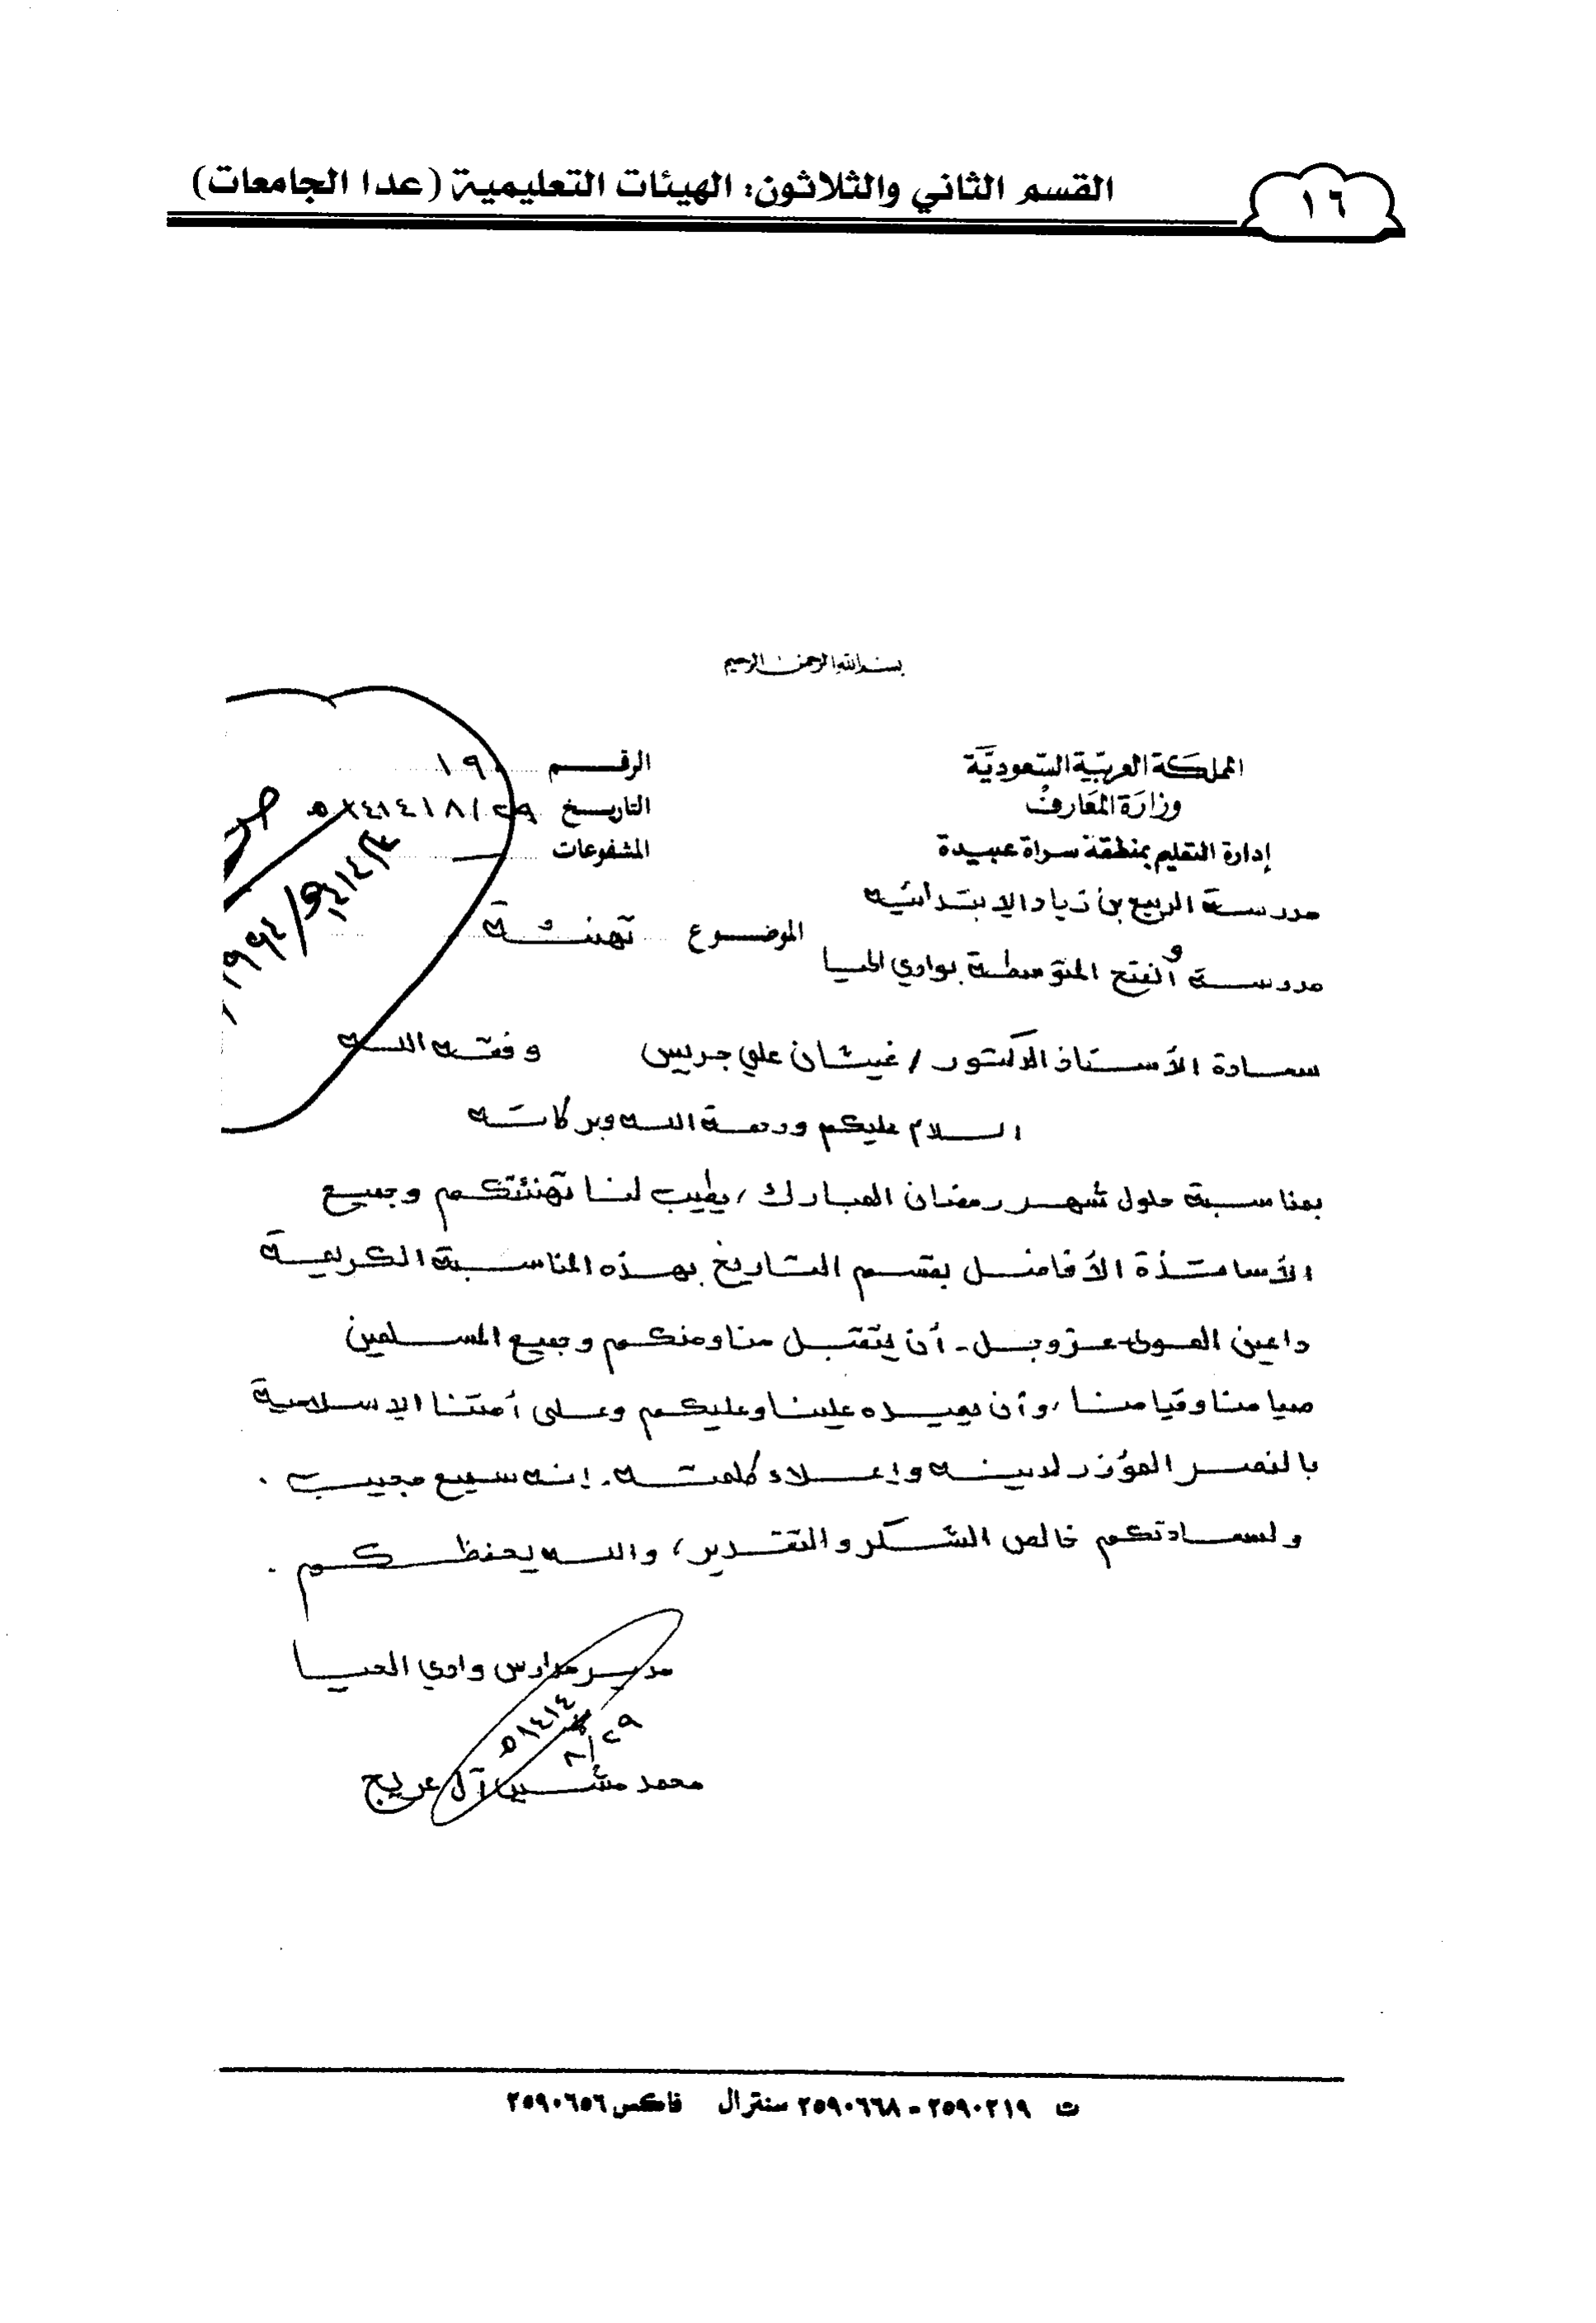 ١٦
القسم الثاني والثلاثون: الهيئات التعليمية (عدا الجامعات)
بسم الله الرحمن الرحيم
المملكة العربية السعودية
وزارة المعارف
إدارة التعليم بمنطقة سراة عبيدة
مدرسة الربيع بن زياد الابتدائيه
و
مدرسة الفتح المتوسطة بوادي الحيا
الرقم ١٩٠
التاريخ ٢٩/ ٨/ ١٤١٤ هـ
المشفوعات
الموضوع تهنئة
سعادة الأستاذ الدكتور / غيثان علي جريس وفقه الله
السلام عليكم ورحمة الله وبركاته
بمناسبة حلول شهر رمضان المبارك، يطيب لنا تهنئتكم وجميع
الأساتذة الأفاضل بقسم التاريخ بهذه المناسبة الكريمة
داعين المولى-عزوجل-أن يتقبل منا ومنكم وجميع المسلمين
صيامنا وقيامنا، وأن يعيده علينا وعليكم وعلى أمتنا الإسلامية
بالنصر المؤزر لدينه وإعلاء كلمته. إنه سميع مجيب .
ولسعادتكم خالص الشكر والتقدير، والله يحفظكم .
مدير مدارس وادي الحيا
٢٩/٨
١٤١٤هـ
محمد آل عريج
ت ٢٥٩٠٢١٩ - ٢٥٩٠٦٦٨ سنترال فاكس ٢٥٩٠٦٥٦